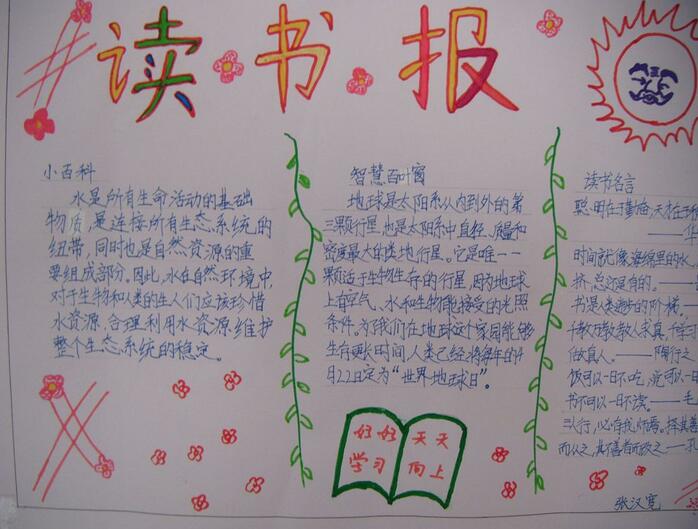 读书报
小百科
水是所有生命活动的基础
物质,是连接所有生态系统的
纽带,同时也是自然资源的重
要组成部分。因此,水在自然环境中,
对于生物和人类的生人们应该珍惜
水资源,合理利用水资源,维护
整个生态系统的稳定。
智慧百叶窗
地球是太阳系从内到外的第
三颗行星,也是太阳系中直径、质量和
密度最大的类地行星。它是唯一一
颗适于生物生存的行星,因为地球
上有空气、水和生物能接受的光照
条件。为我们在地球这个家园能够
生存更长时间,人类已经将每年的4
月22日定为“世界地球日”。
好好 天天
学习 向上
读书名言
聪明在于勤奋,天才在于积
——华
时间就像海绵里的水,
挤,总还是有的。——
书是人类进步的阶梯。
千教万教教人求真,千学
做真人。——陶行之
饭可以一日不吃,觉可以一日
书不可以一日不读。——毛
三人行,必有我师焉。择其善
而从之,其不善者而改之——孔
张汉宽